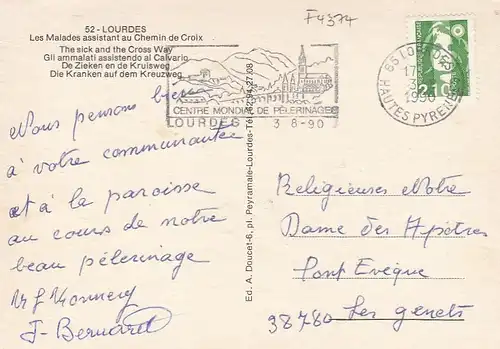 52 - LOURDES
Les Malades assistant au Chemin de Croix
The sick and the Cross Way
Gli ammalati assistendo al Calvario
De Zieken en de Kruisweg
Die Kranken auf dem Kreuzweg
F4374
CENTRE MONDIAL DE PÈLERINAGES
LOURDES 3 8-90
65 LOURDES
17
3 8
1990
HAUTES PYRENEES
2,10
Nous pensons bien
à votre communauté
et à la paroisse
au cours de notre
beau pélerinage
F- Bernard
Ed. A. Doucet-6, pl. Peyramale-Lourdes-Tél. 62.94.27.08
Religieuses Notre
Dame des Apôtres
Pont Evêque
Les genets
38780